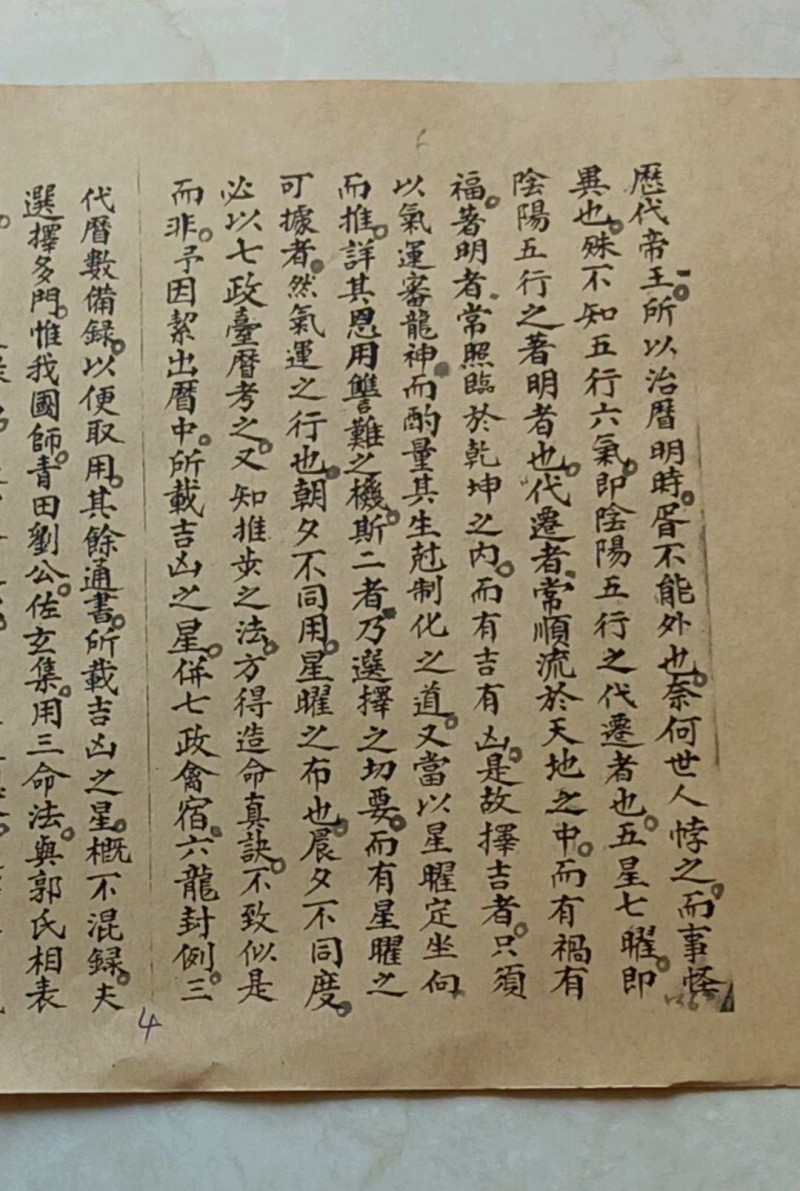 歷代帝王。所以治曆明時。胥不能外也。奈何世人悖之。而事怪
異也。殊不知五行六氣。即陰陽五行之代遷者也。五星七曜。即
陰陽五行之著明者也。代遷者。常順流於天地之中。而有禍有
福。著明者。常照臨於乾坤之內。而有吉有凶。是故擇吉者。只須
以氣運審龍神。而酌量其生尅制化之道。又當以星曜定坐向
而推。詳其恩用讐難之機。斯二者。乃選擇之切要。而有星曜之
可據者。然氣運之行也。朝夕不同用。星曜之布也。晨夕不同度。
必以七政臺曆考之。又知推步之法。方得造命真訣。不致似是
而非。予因絜出曆中。所載吉凶之星。併七政禽宿。六龍封例。三
代曆數備録。以便取用。其餘通書。所載吉凶之星。概不混録。夫
選擇多門。惟我國師。青田劉公。佐玄集。用三命法。與郭氏相表
4